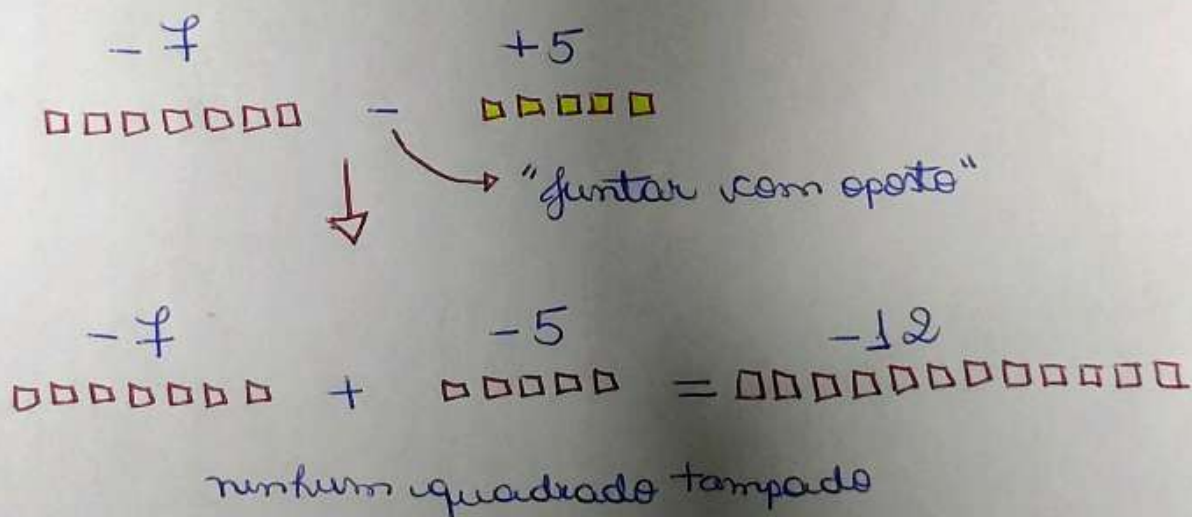 -7 +5
-
"Juntar com oposto"
-7 -5 -12
+ =
nenhum quadrado tampado